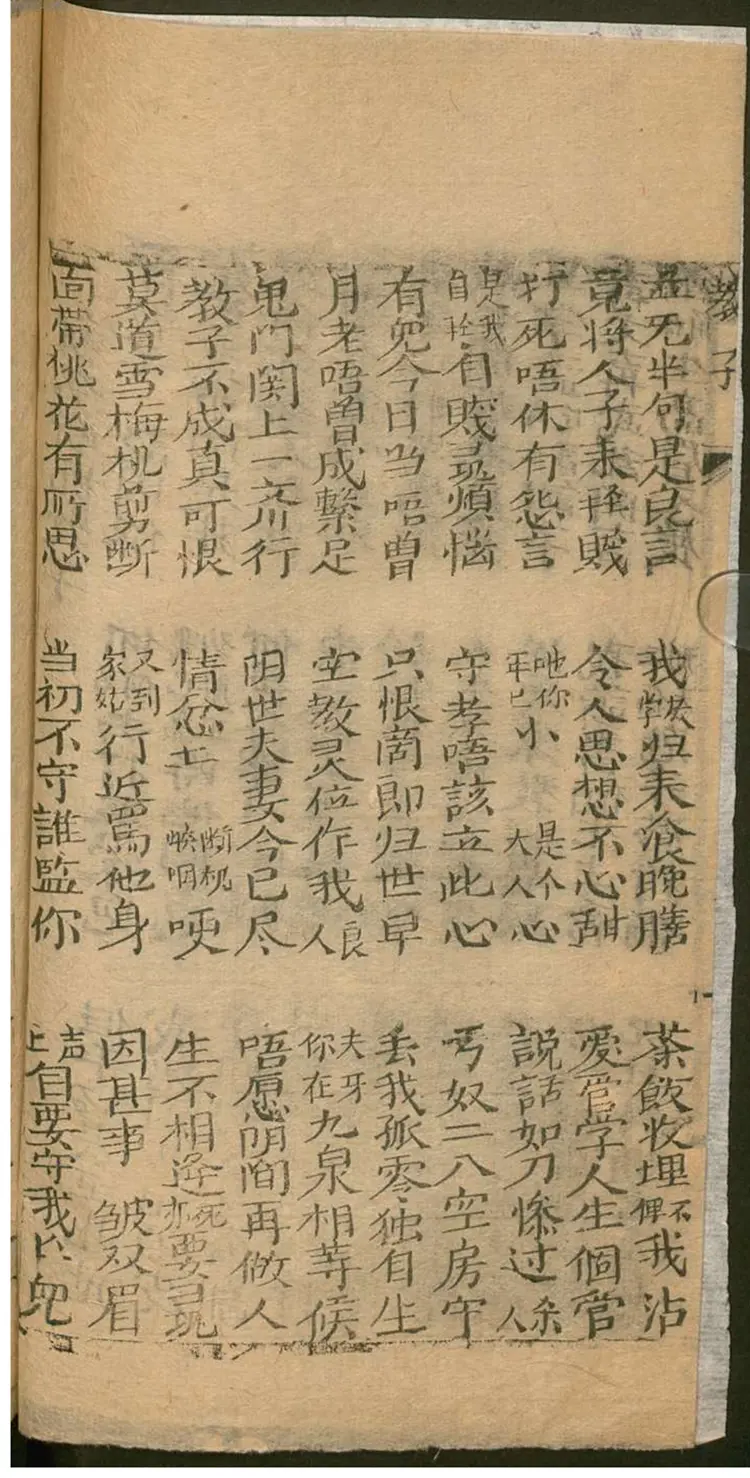 教子
並旡半句是良言 我放学归来飧晚膳 茶飯收埋不俾我沾
竟将人子来輕贱 令人思想不心甜 爱管学人生個管
打死唔休有怨言 吔你年已小 是个大人心 説話如刀惨过杀人
是我自拴自贱尋煩惱 守孝唔該立此心 丐奴二八空房守
有兒今日当唔曽 只恨啇郎归世早 丢我孤零独自生
月老唔曽成繫足 空教灵位作我良人 夫牙你在九泉相等候
鬼门関上一齐行 阴世夫妻今已尽 唔愿阴间再做人
教子不成真可恨 情忿 断机喉咽哽 生不相逢死亦要
莫道雪梅机剪断 又到家姑行近罵他身 因甚事 皱双眉
面帶桃花有所思 当初不守誰監你 声自要守我兒